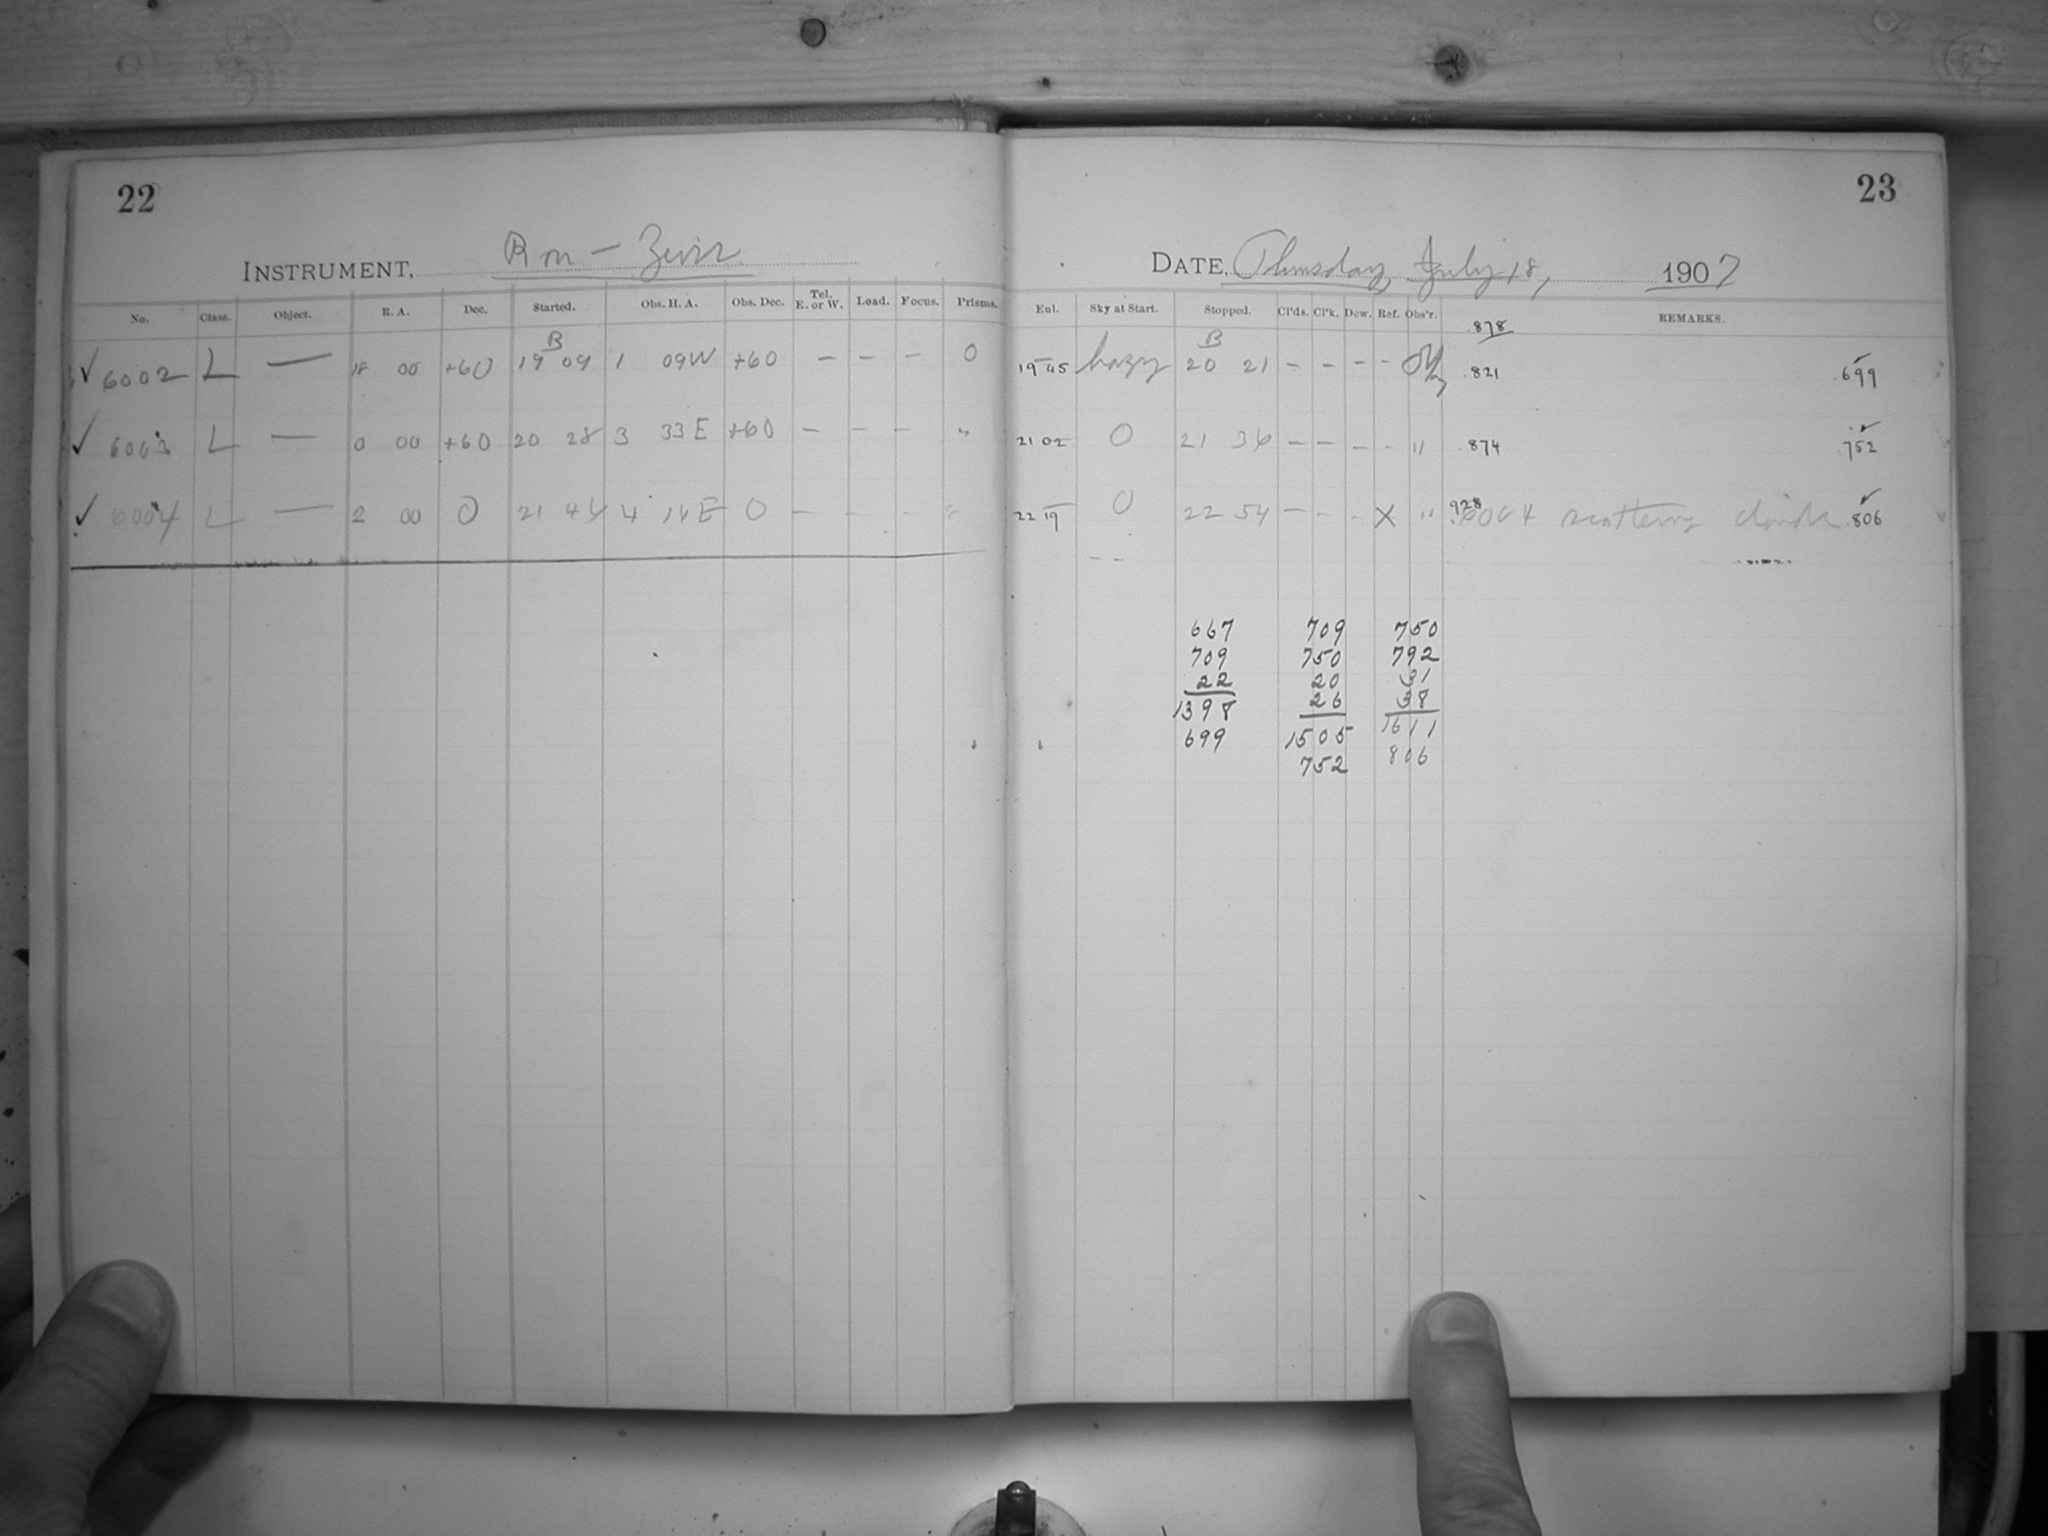 22
INSTRUMENT,
No. Class. Object. R. A. Dec. Started. Obs. H. A. Obs. Dec. Tel. E. or W. Load. Focus. Prisms.
B
✓ 6002 L — 18 00 +60 19 09 1 09W +60 — — — 0
✓ 6003 L — 0 00 +60 20 28 3 33 E +60 — — — "
✓ 6004 L — 2 00 0 21 4 E 0 — — — "
23
DATE, Thursday, July 18, 1907
Enl. Sky at Start. Stopped. Cl'ds. Cl'k. Dew. Ref. Obs'r. REMARKS.
.878
B
19 45 hazy 20 21 — — — — .821 .699
21 02 0 21 36 — — — — " .874 .752
22 19 0 22 54 — — — X " .928 6004 scattering clouds .806
667 709 750
709 750 792
22 20 31
1398 26 38
699 1505 1611
752 806